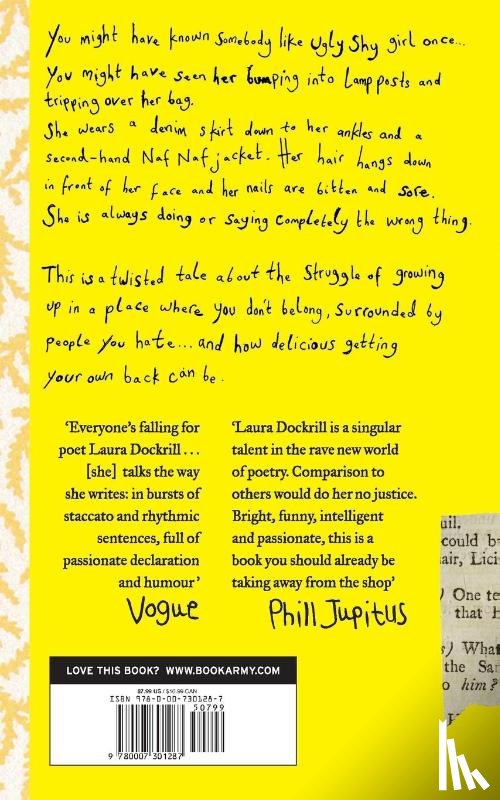 You might have known somebody like Ugly Shy girl once...
You might have seen her bumping into Lampposts and
tripping over her bag.
She wears a denim skirt down to her ankles and a
second-hand Naf Naf jacket. Her hair hangs down
in front of her face and her nails are bitten and sore.
She is always doing or saying completely the wrong thing.
This is a twisted tale about the Struggle of growing
up in a place where you don't belong, surrounded by
people you hate... and how delicious getting
your own back can be.
‘Everyone's falling for
poet Laura Dockrill...
[she] talks the way
she writes: in bursts of
staccato and rhythmic
sentences, full of
passionate declaration
and humour’
Vogue
‘Laura Dockrill is a singular
talent in the rave new world
of poetry. Comparison to
others would do her no justice.
Bright, funny, intelligent
and passionate, this is a
book you should already be
taking away from the shop’
Phill Jupitus
uil.
could b
air, Lici
) One te
that H
s) What
the Sa
o him?
LOVE THIS BOOK? WWW.BOOKARMY.COM
$7.99 US / $10.99 CAN
ISBN 978-0-00-730128-7
50799
9 780007 301287